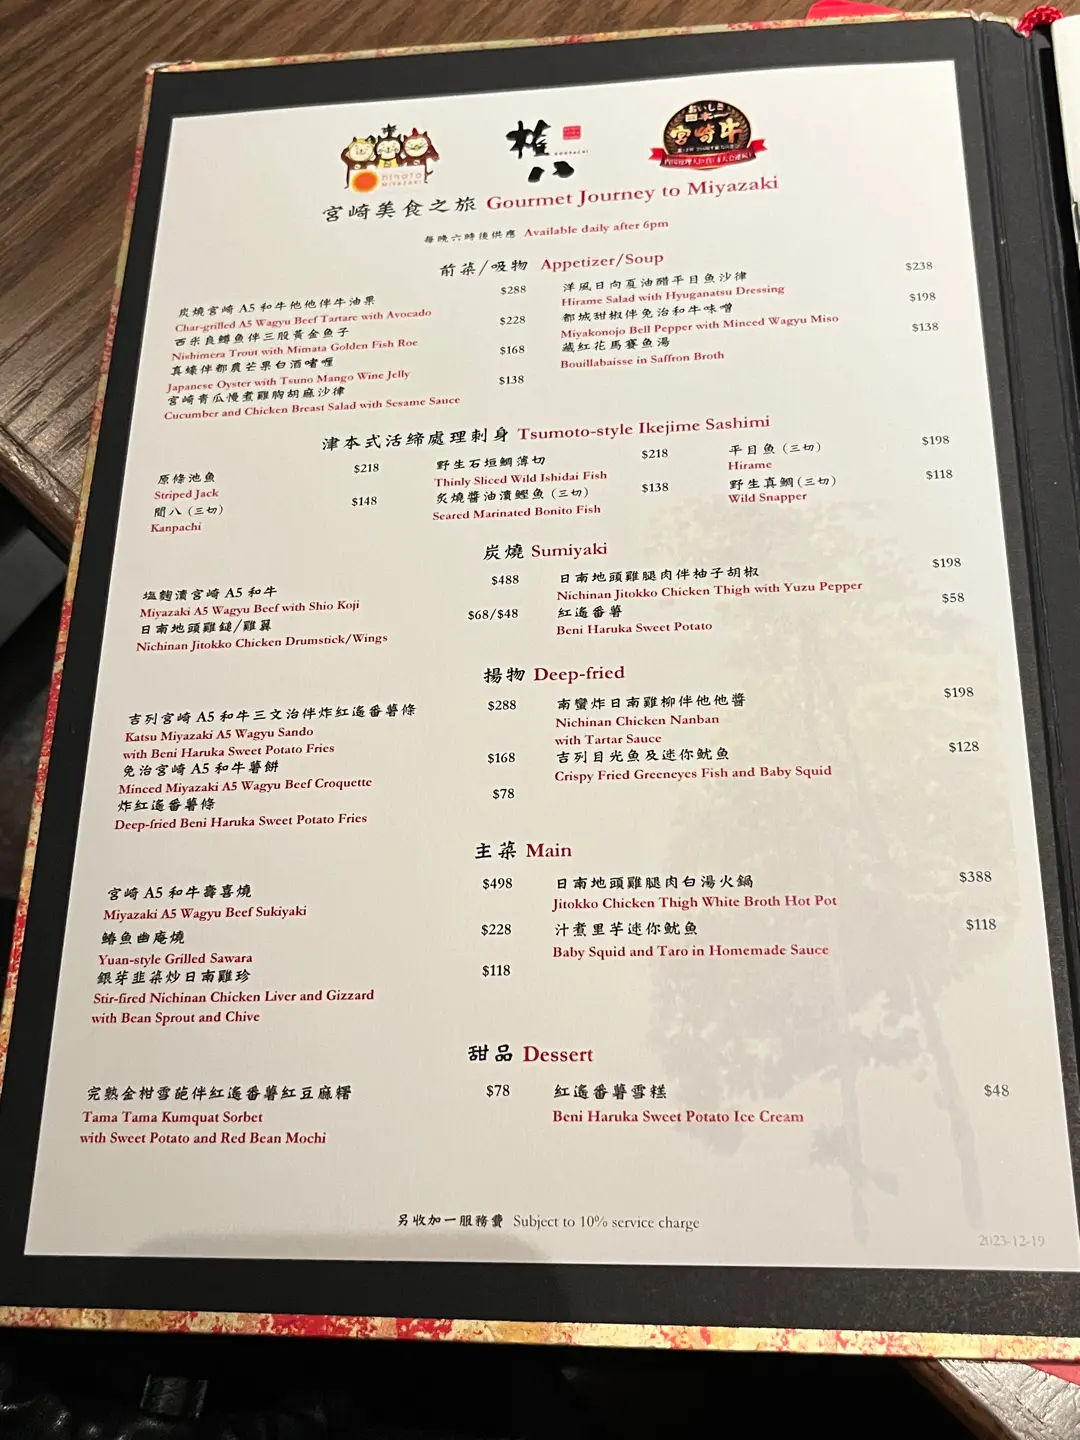 hinata
MIYAZAKI
権八
GONPACHI
おいしさ
日本一
宮崎牛
宮崎美食之旅 Gourmet Journey to Miyazaki
每晚六時後供應 Available daily after 6pm
前菜/吸物 Appetizer/Soup
炭燒宮崎 A5 和牛他他伴牛油果 $288
Char-grilled A5 Wagyu Beef Tartare with Avocado
西米良鱒魚伴三股黃金魚子 $228
Nishimera Trout with Mimata Golden Fish Roe
真蠔伴都農芒果白酒啫喱 $168
Japanese Oyster with Tsuno Mango Wine Jelly
宮崎青瓜慢煮雞胸胡麻沙律 $138
Cucumber and Chicken Breast Salad with Sesame Sauce
洋風日向夏油醋平目魚沙律 $238
Hirame Salad with Hyuganatsu Dressing
都城甜椒伴免治和牛味噌 $198
Miyakonojo Bell Pepper with Minced Wagyu Miso
藏紅花馬賽魚湯 $138
Bouillabaisse in Saffron Broth
津本式活締處理刺身 Tsumoto-style Ikejime Sashimi
原條池魚 $218
Striped Jack
間八 (三切) $148
Kanpachi
野生石垣鯛薄切 $218
Thinly Sliced Wild Ishidai Fish
炙燒醬油漬鰹魚 (三切) $138
Seared Marinated Bonito Fish
平目魚 (三切) $198
Hirame
野生真鯛 (三切) $118
Wild Snapper
炭燒 Sumiyaki
塩麴漬宮崎 A5 和牛 $488
Miyazaki A5 Wagyu Beef with Shio Koji
日南地頭雞鎚/雞翼 $68/$48
Nichinan Jitokko Chicken Drumstick/Wings
日南地頭雞腿肉伴柚子胡椒 $198
Nichinan Jitokko Chicken Thigh with Yuzu Pepper
紅遙番薯 $58
Beni Haruka Sweet Potato
揚物 Deep-fried
吉列宮崎 A5 和牛三文治伴炸紅遙番薯條 $288
Katsu Miyazaki A5 Wagyu Sando
with Beni Haruka Sweet Potato Fries
免治宮崎 A5 和牛薯餅 $168
Minced Miyazaki A5 Wagyu Beef Croquette
炸紅遙番薯條 $78
Deep-fried Beni Haruka Sweet Potato Fries
南蠻炸日南雞柳伴他他醬 $198
Nichinan Chicken Nanban
with Tartar Sauce
吉列目光魚及迷你魷魚 $128
Crispy Fried Greeneyes Fish and Baby Squid
主菜 Main
宮崎 A5 和牛壽喜燒 $498
Miyazaki A5 Wagyu Beef Sukiyaki
鰆魚幽庵燒 $228
Yuan-style Grilled Sawara
銀芽韭菜炒日南雞珍 $118
Stir-fired Nichinan Chicken Liver and Gizzard
with Bean Sprout and Chive
日南地頭雞腿肉白湯火鍋 $388
Jitokko Chicken Thigh White Broth Hot Pot
汁煮里芋迷你魷魚 $118
Baby Squid and Taro in Homemade Sauce
甜品 Dessert
完熟金柑雪葩伴紅遙番薯紅豆麻糬 $78
Tama Tama Kumquat Sorbet
with Sweet Potato and Red Bean Mochi
紅遙番薯雪糕 $48
Beni Haruka Sweet Potato Ice Cream
另收加一服務費 Subject to 10% service charge
2023-12-19